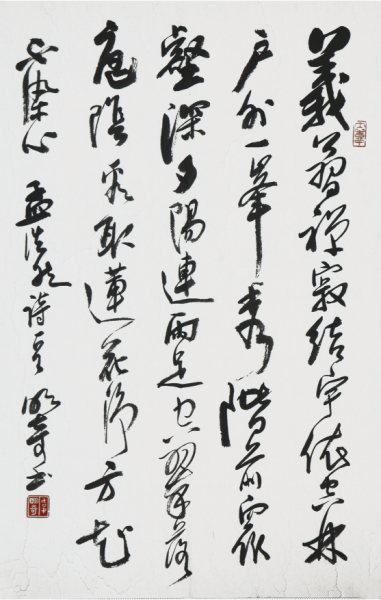 義公習禪寂結宇依空林
戶外一峯秀階前眾
壑深夕陽連雨足空翠落
庭陰看取蓮花淨方知
不染心 孟浩然詩一首 明奇书